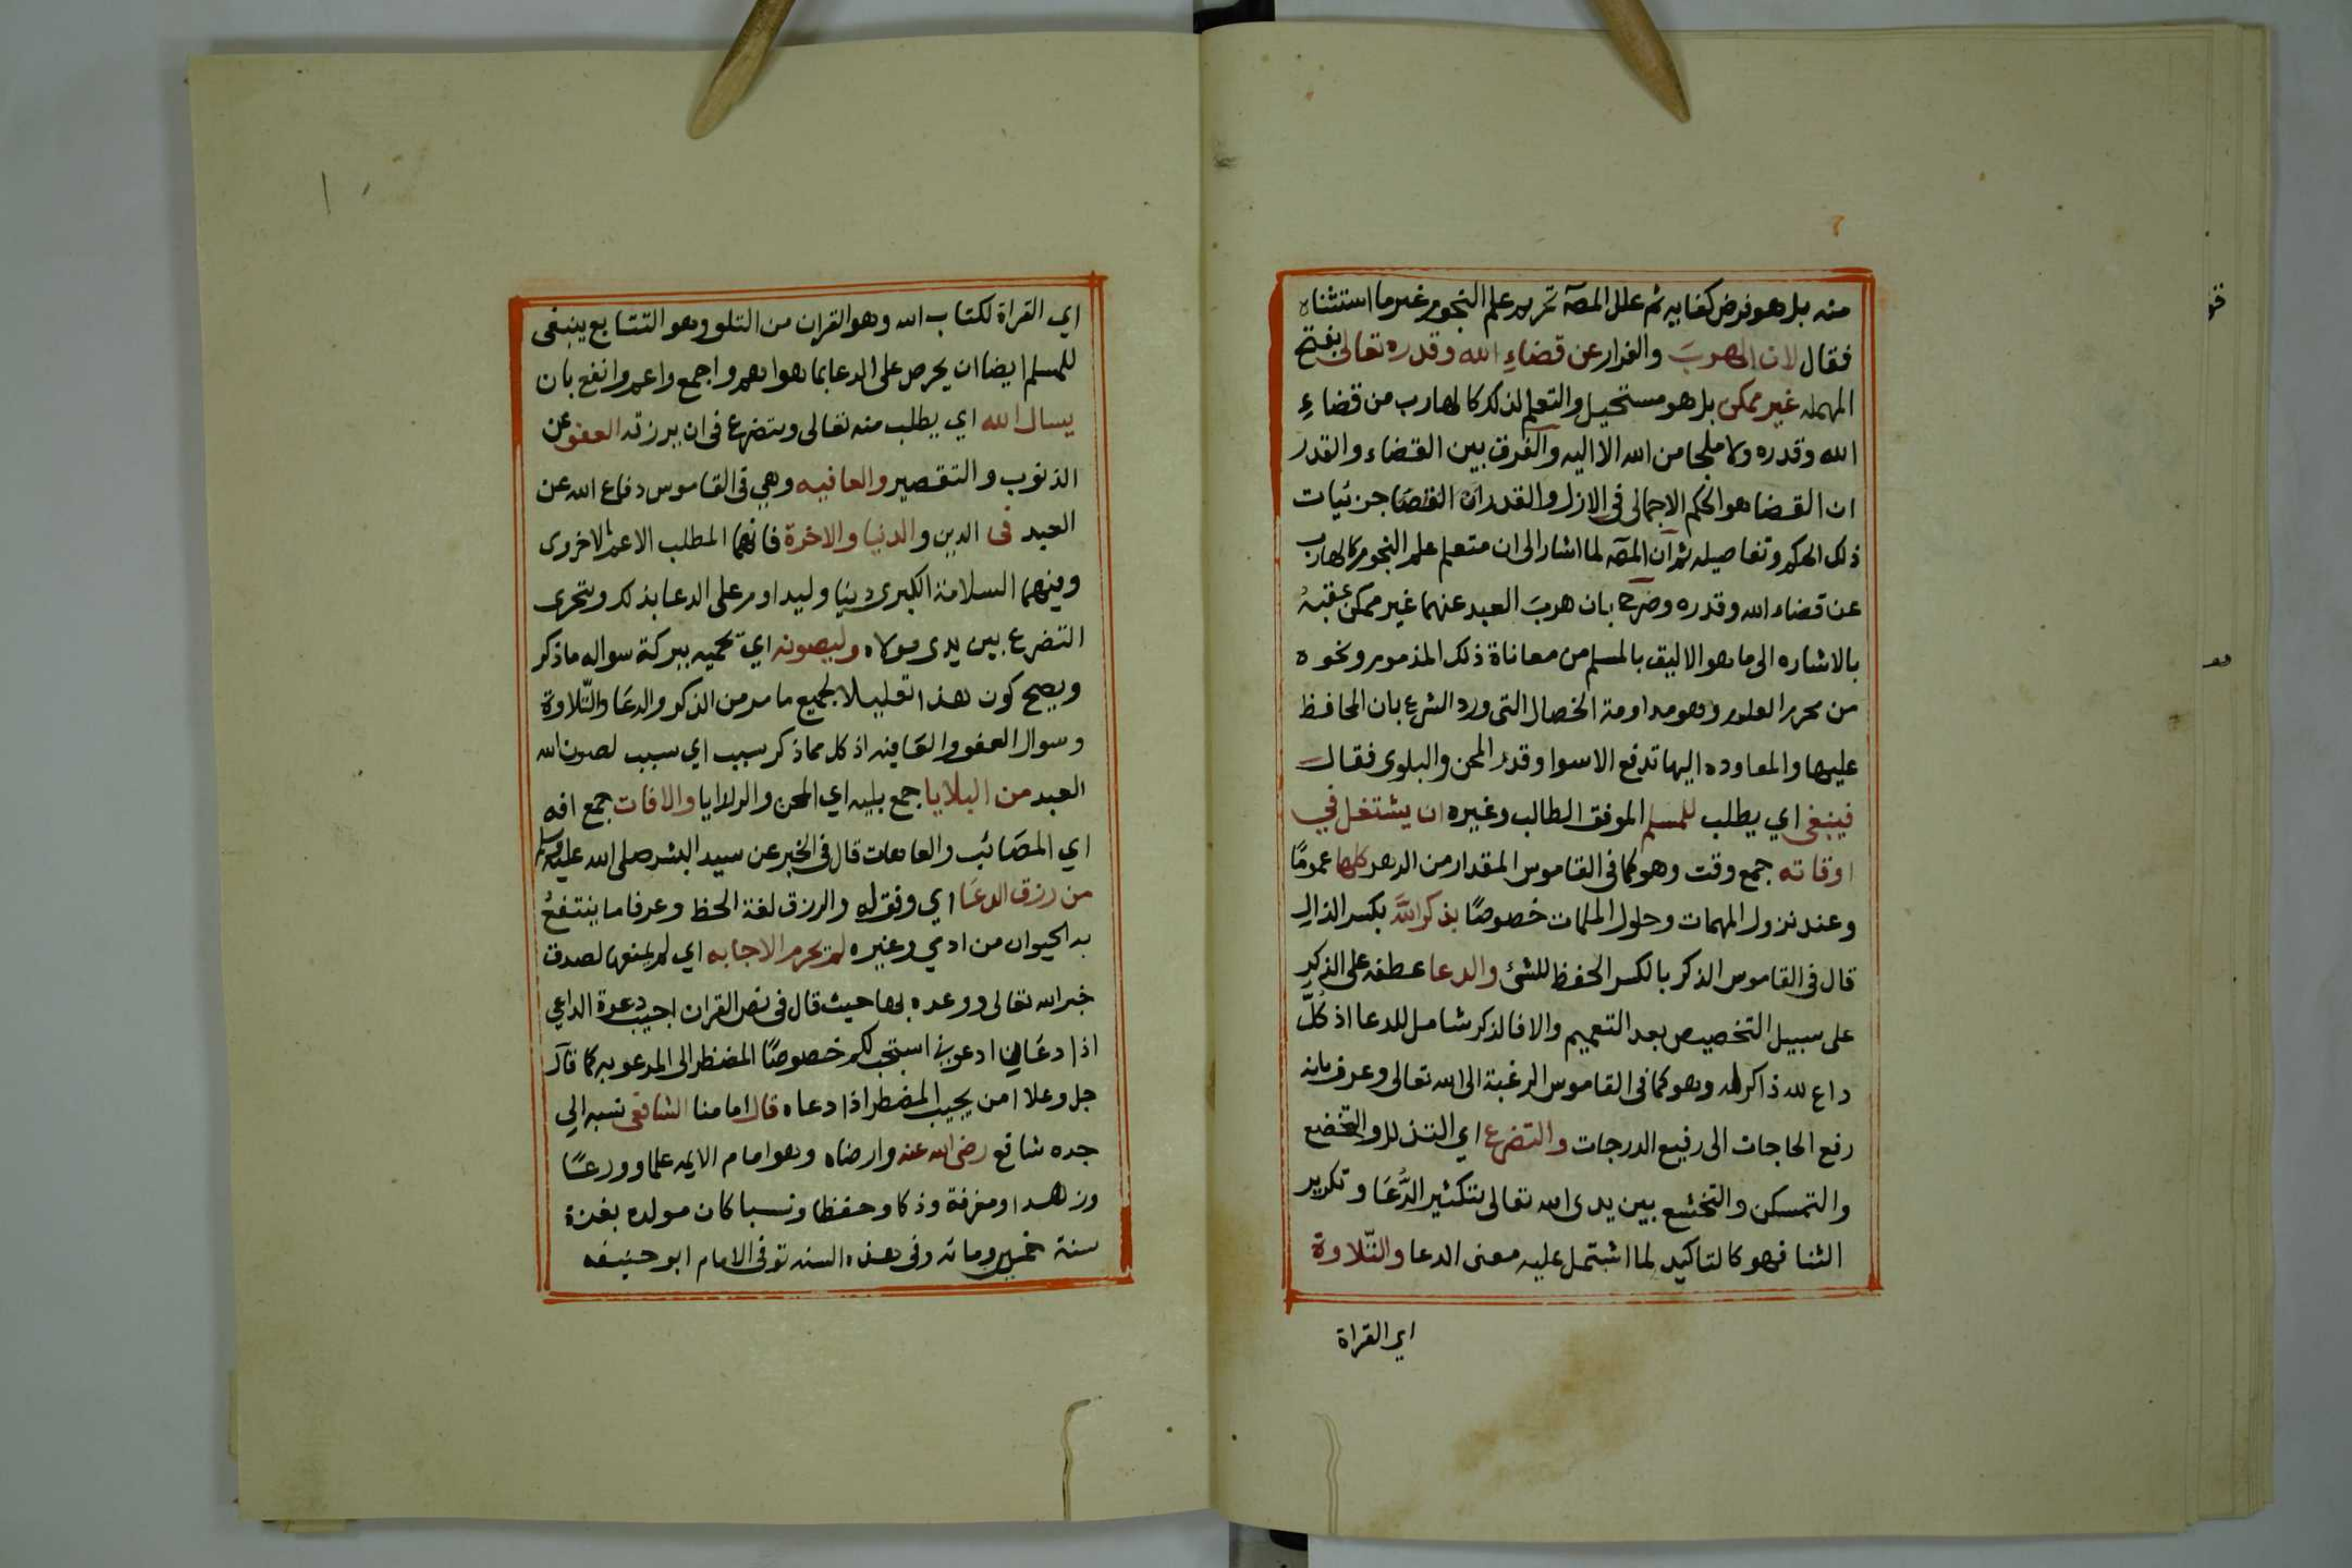 منه بل هو فرض كفايه ثم علل المصآ تحريم علم النجوم غير ما استثناه
فقال لان الهرب والفرار عن قضاءِ الله وقدره تعالى بفتح
المهمله غير ممكن بل هو مستحيل والتعلم لذلك كالهارب من قضاءِ
الله وقدره ولا ملجا من الله الا اليه والفرق بين القضاء والقدر
ان القضا هو الحكم الاجمالي في الازل والقدر ان القضا جزئيات
ذلك الحكم وتفاصيله ثم ان المصآ لما اشار الى ان متعلم علم النجوم كالهارب
عن قضاء الله وقدره وصرح بان هربَ العبد عنهما غير ممكن عقبهُ
بالاشاره الى ما هو الاليق بالمسلم من معاناة ذلك المذموم ونحوه
من محرم العلوم وهو مداومة الخصال التي ورد الشرع بان المحافظ
عليها والمعاوده اليها تدفع الاسوا وقدر المحن والبلوى فقال
فينبغي اي يطلب للمسلم الموفق الطالب وغيره ان يشتغل في
اوقاته جمع وقت وهو كما في القاموس المقدار من الدهر كلها عمومًا
وعند نزول المهمات وحلول الملمات خصوصًا بذكر اللَّه بكسر الذال
قال في القاموس الذكر بالكسر الحفظ للشئ والدعا عطفه على الذكرِ
على سبيل التخصيص بعد التعميم والا فالذكر شامل للدعا اذ كلّ
داع لله ذاكر له وهو كما في القاموس الرغبة الى الله تعالى وعرف بانه
رفع الحاجات الى رفيع الدرجات والتضرع اي التذلل والتخضع
والتمسكن والتخشع بين يدى الله تعالى بتكثير الدُّعَا وتكرير
الثنا فهو كالتاكيد لما اشتمل عليه معنى الدعا والتّلاوة
اي القراة
اي القراة لكتاب الله وهو القران من التلو وهو التتابع ينبغى
للمسلم ايضا ان يحرص على الدعا بما هو اهم واجمع واعم وانفع بان
يسال الله اي يطلب منه تعالى ويتضرع في ان يرزقه العفو عن
الذنوب والتقصير والعافيه وهي في القاموس دفاع الله عن
العبد فى الدين والدنيا والاخرة فانهما المطلب الاعم الاخروى
وفيهما السلامة الكبرى دنيا وليداوم على الدعا بذلك ويتحرى
التضرع بين يدى مولاه وليصونه اي يحميه ببركة سواله ما ذكر
ويصح كون هذا تعليلا لجميع ما مر من الذكر والدعَا والتّلاوة
وسوال العفو والعَافيه اذ كل مما ذكر سبب اي سبب لصون الله
العبد من البلايا جمع بليه اي المحن والرزايا والافات جمع افه
اي المصَائب والعاهات قال في الخبر عن سيد البشر صلى الله عليه وسلم
من رزق الدعَا اي وفق له والرزق لغة الحظ وعرفا ما ينتفعُ
به الحيوان من ادمي وغيره لم يحرم الاجابه اي لم يمنعها لصدق
خبر الله تعالى ووعده بها حيث قال فى نص القران اجيب دعوة الداعي
اذا دعَانِ ادعوني استجب لكم خصوصًا المضطر الى المدعو به كما قال
جل وعلا امن يجيب المضطر اذا دعاه قال امامنا الشافعى نسبه الي
جده شافع رضى الله عنه وارضاه وهو امام الايمه علما وورعًا
وزهدا ومعرفة وذكا وحفظا ونسبا كان مولده بغزة
سنة خمسين ومائه وفى هذه السنه توفى الامام ابو حنيفه